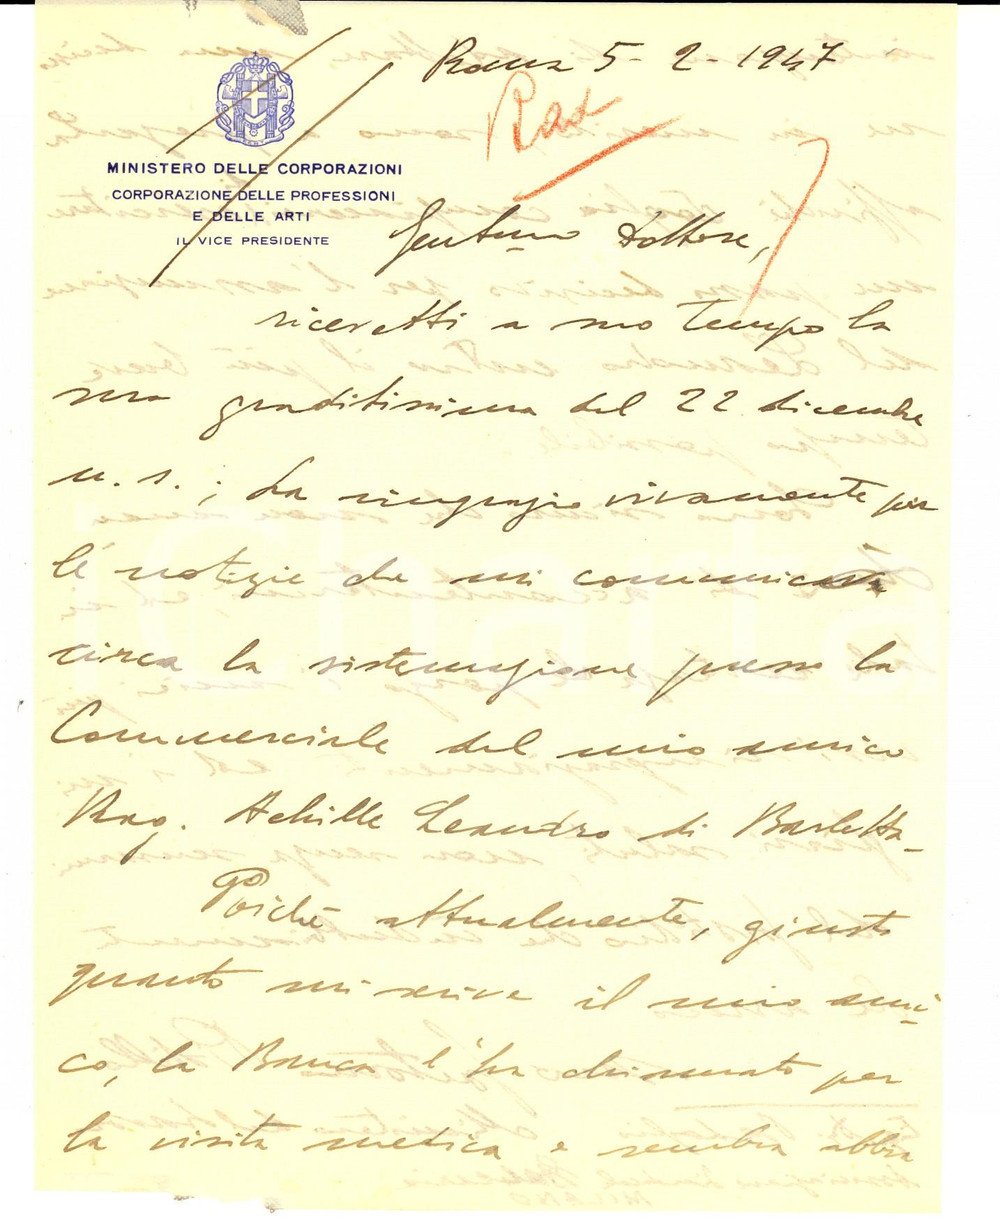 Roma 5-2-1947
MINISTERO DELLE CORPORAZIONI
CORPORAZIONE DELLE PROFESSIONI
E DELLE ARTI
IL VICE PRESIDENTE
Gentmo Dottore,
ricevetti a suo tempo la
sua graditissima del 22 dicembre
u. s.; La ringrazio vivamente per
le notizie che mi comunica
circa la sistemazione presso la
Commerciale del mio amico
Rag. Achille Leandro di Barletta-
Poichè attualmente, giusto
quanto mi scrive il mio ami-
co, la Banca l'ha chiamato per
la visita medica e sembra abbia